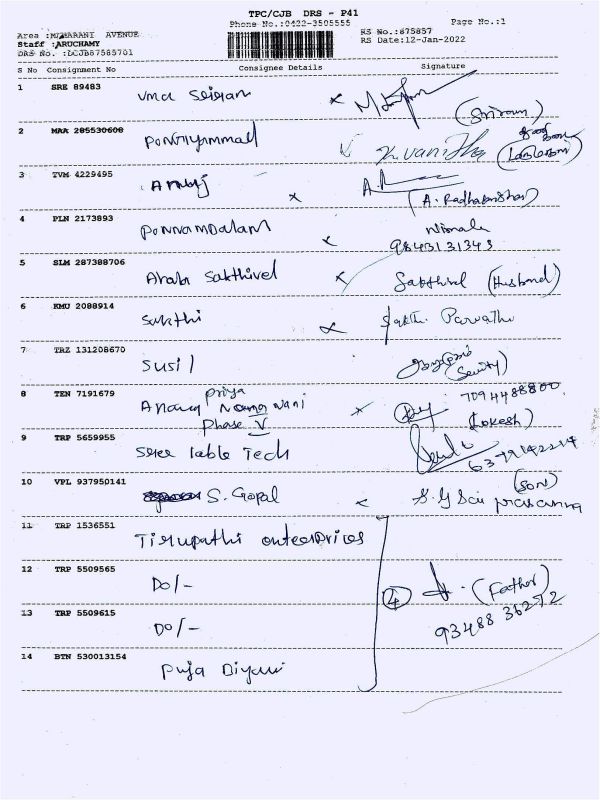 TPC/CJB DRS - P41
Phone No.:0422-3505555
Page No.:1
Area :MAHARANI AVENUE
RS No.:675857
Staff :ARUCHAMY
RS Date:12-Jan-2022
DRS No. :DCJB67585701
S No Consignment No Consignee Details Signature
1 SRE 89483 uma sriram (Sriram)
2 MAA 285530608 K. Vanitha
3 TVM 4229495 (A. Radhakrishnan)
4 PLN 2173893 Ponnambalam Nirmala
9843131343
5 SLM 287388706 Arabi Sakthivel Sakthivel (Husband)
6 KMU 2088914 Sakthi Parvathi
7 TRZ 131208670 Susil
8 TEN 7191679 Priya 7094488800
Phase V (Lokesh)
9 TRP 5659955 Sree Table Tech
10 VPL 937950141 S. Gopal (Son)
S. G Sai prasanna
11 TRP 1536551 Tirupathi enterprises
12 TRP 5509565 Do/- 4 (Father)
13 TRP 5509615 Do/- 93488 36272
14 BTN 530013154 Puja Diyani